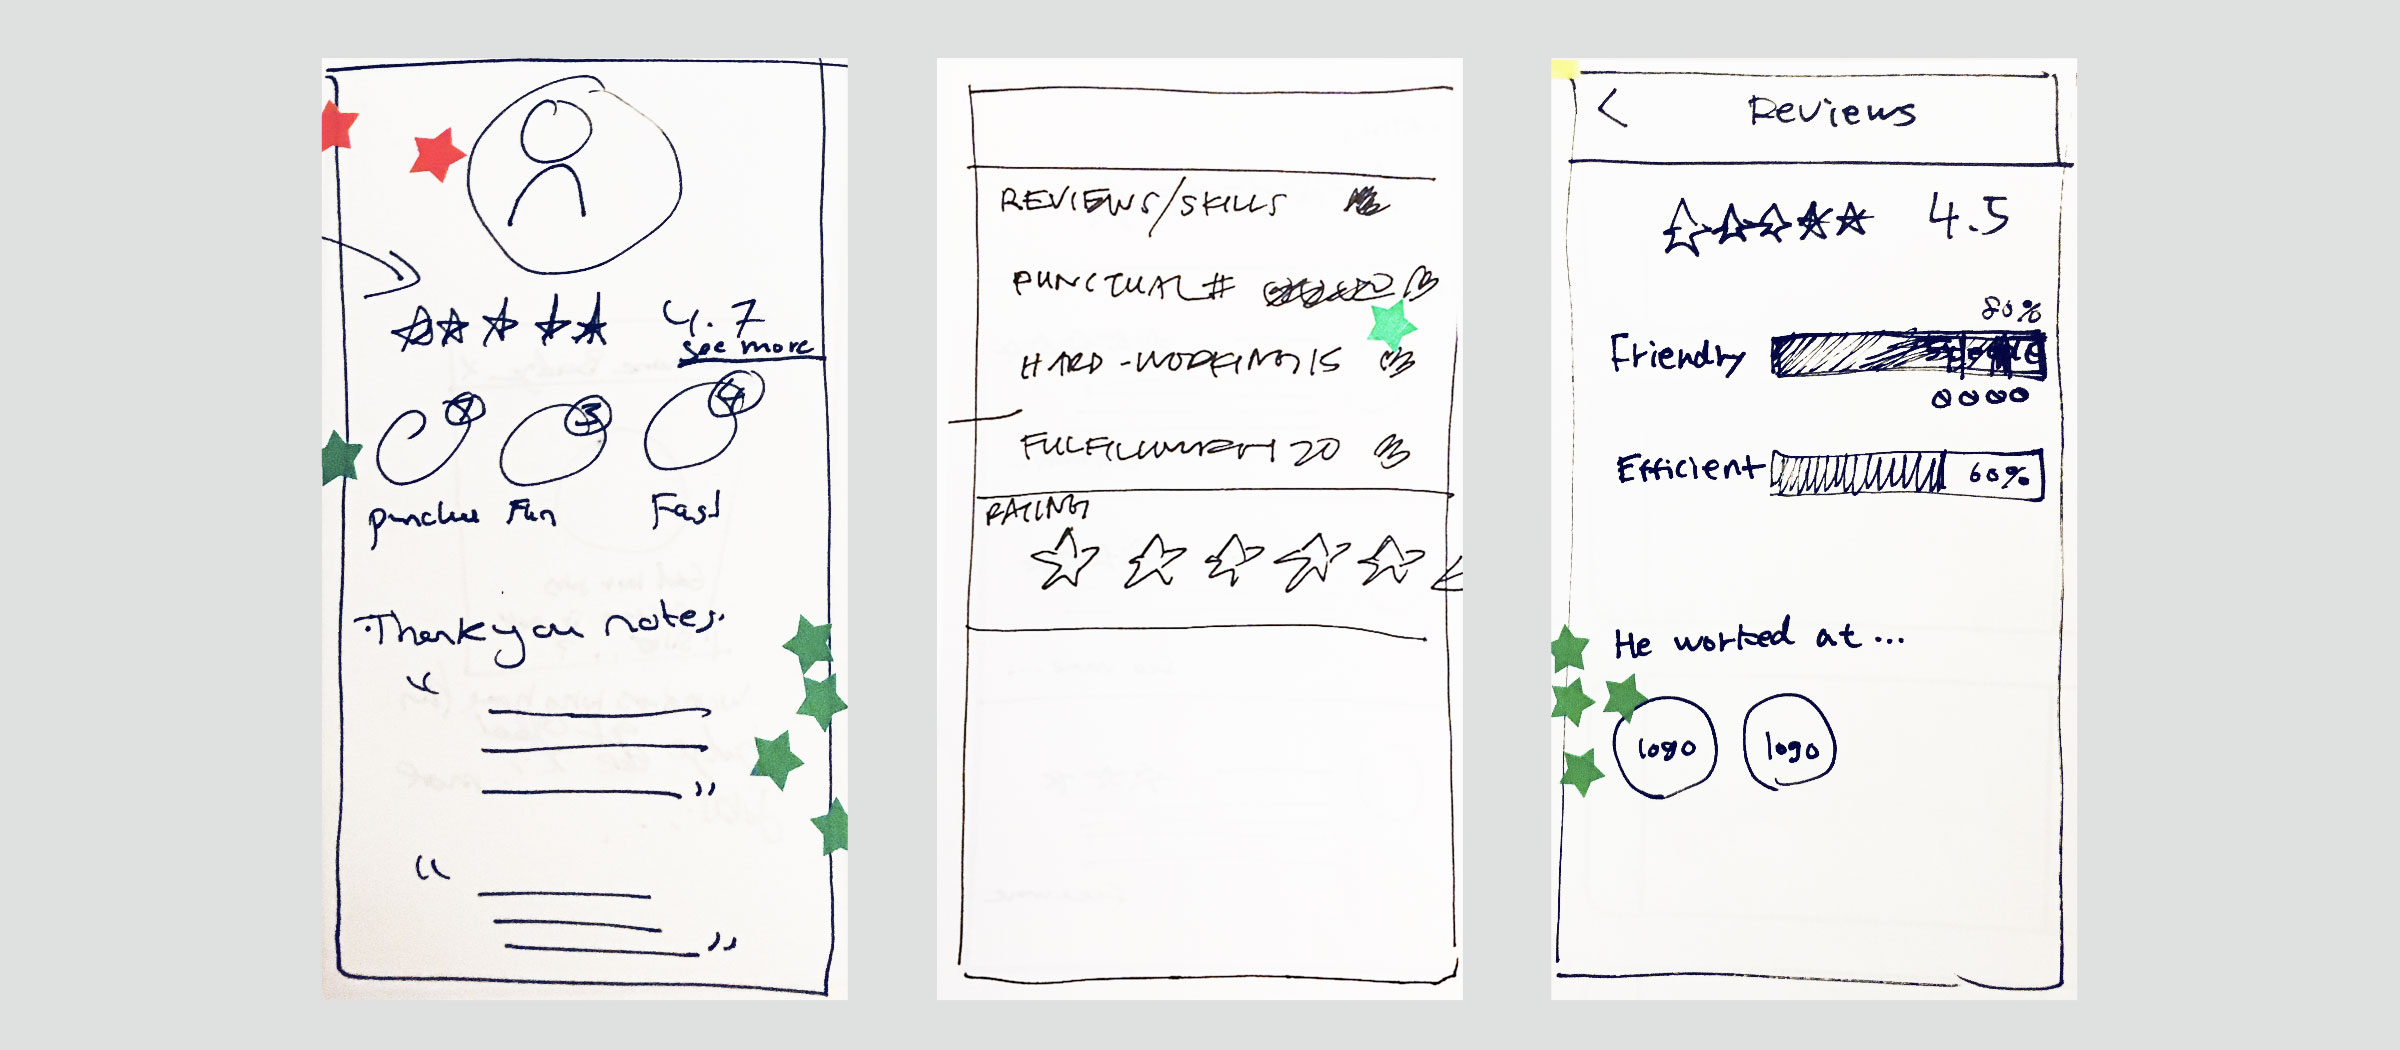 4.7
see more
3
4
Fun
Fast
Thank you notes.
REVIEWS/SKILLS
PUNCTUAL #
HARD-WORKING 15
FULFILLMENT 20
RATING
Reviews
4.5
80%
Friendly
Efficient 60%
He worked at...
logo logo